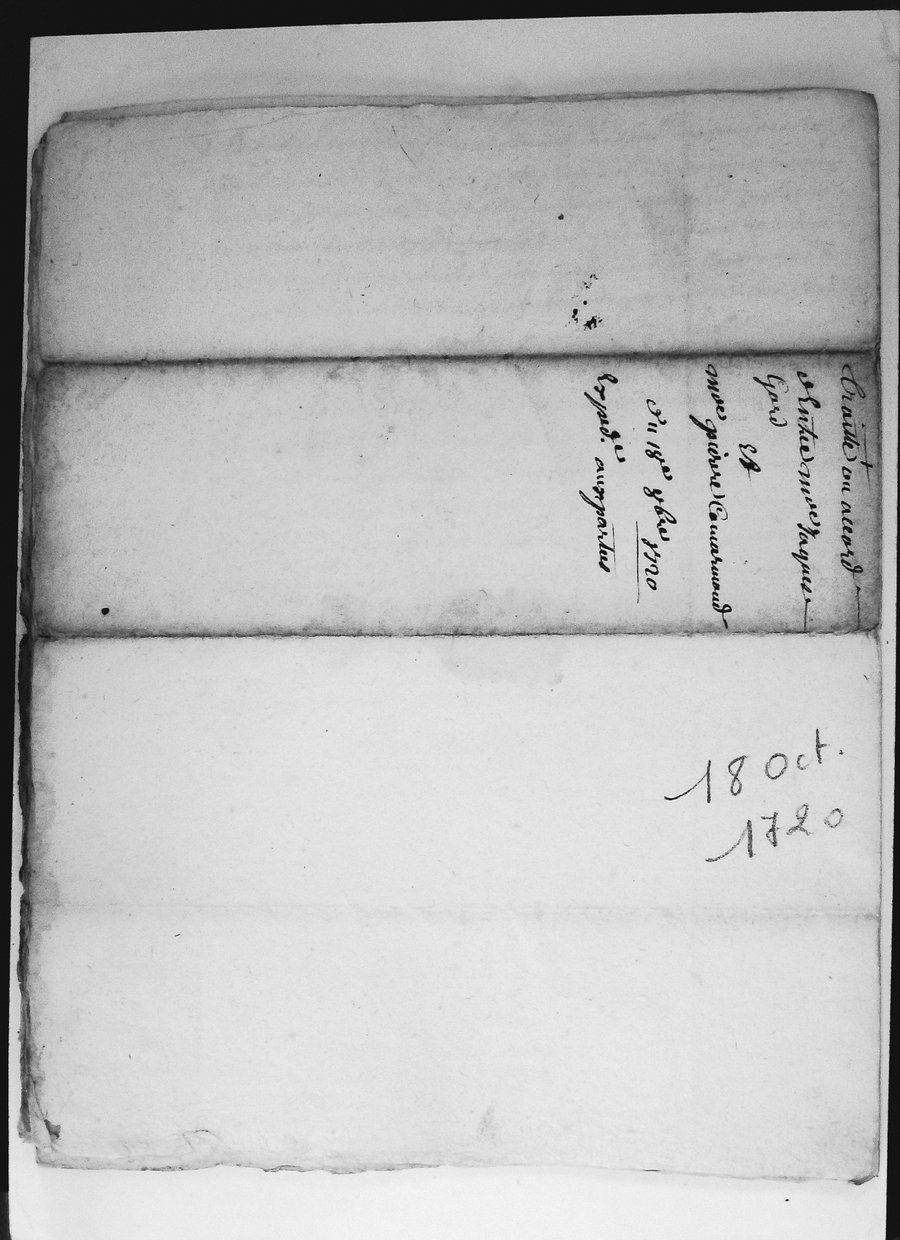 Traitté ou accord
d'Entre moe Jaques
Gord
Et
moe pierre Comarmond
du 18e 8bre 1720
Exped.e aux parties
18 Oct.
1720